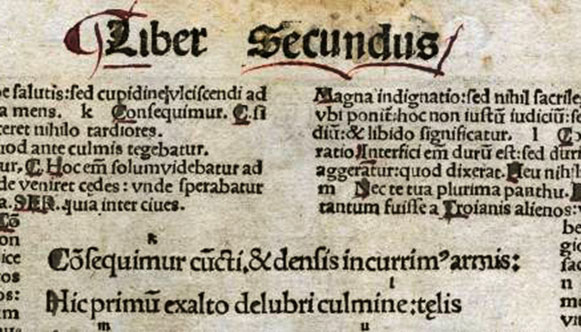 Liber Secundus
e salutis:sed cupidine vlciscendi ad
a mens. k Consequimur. C. si
teret nihilo tardiores.
uod ante culmis tegebatur.
ur. C. Hoc em̄ solum videbatur ad
de veniret cędes: vnde sperabatur
a. SER. quia inter ciues.
Magna indignatio: sed nihil sacrile
vbi ponit̄: hoc non iustū iudiciū: se
diū: & libido significatur. l C
ratio. Interfici em̄ durū est: sed duri
aggeratur: quod dixerat. Heu nihil
m Nec te tua plurima panthu. P
tantum fuisse a Troianis alienos: v
Cō
on
ice
ros
os:
m
k
Cōsequimur cūcti, & densis incurrim⁹ armis:
l
Hic primū ex alto delubri culmine: tęlis
m
u
be
gio
fac
n
me
vit